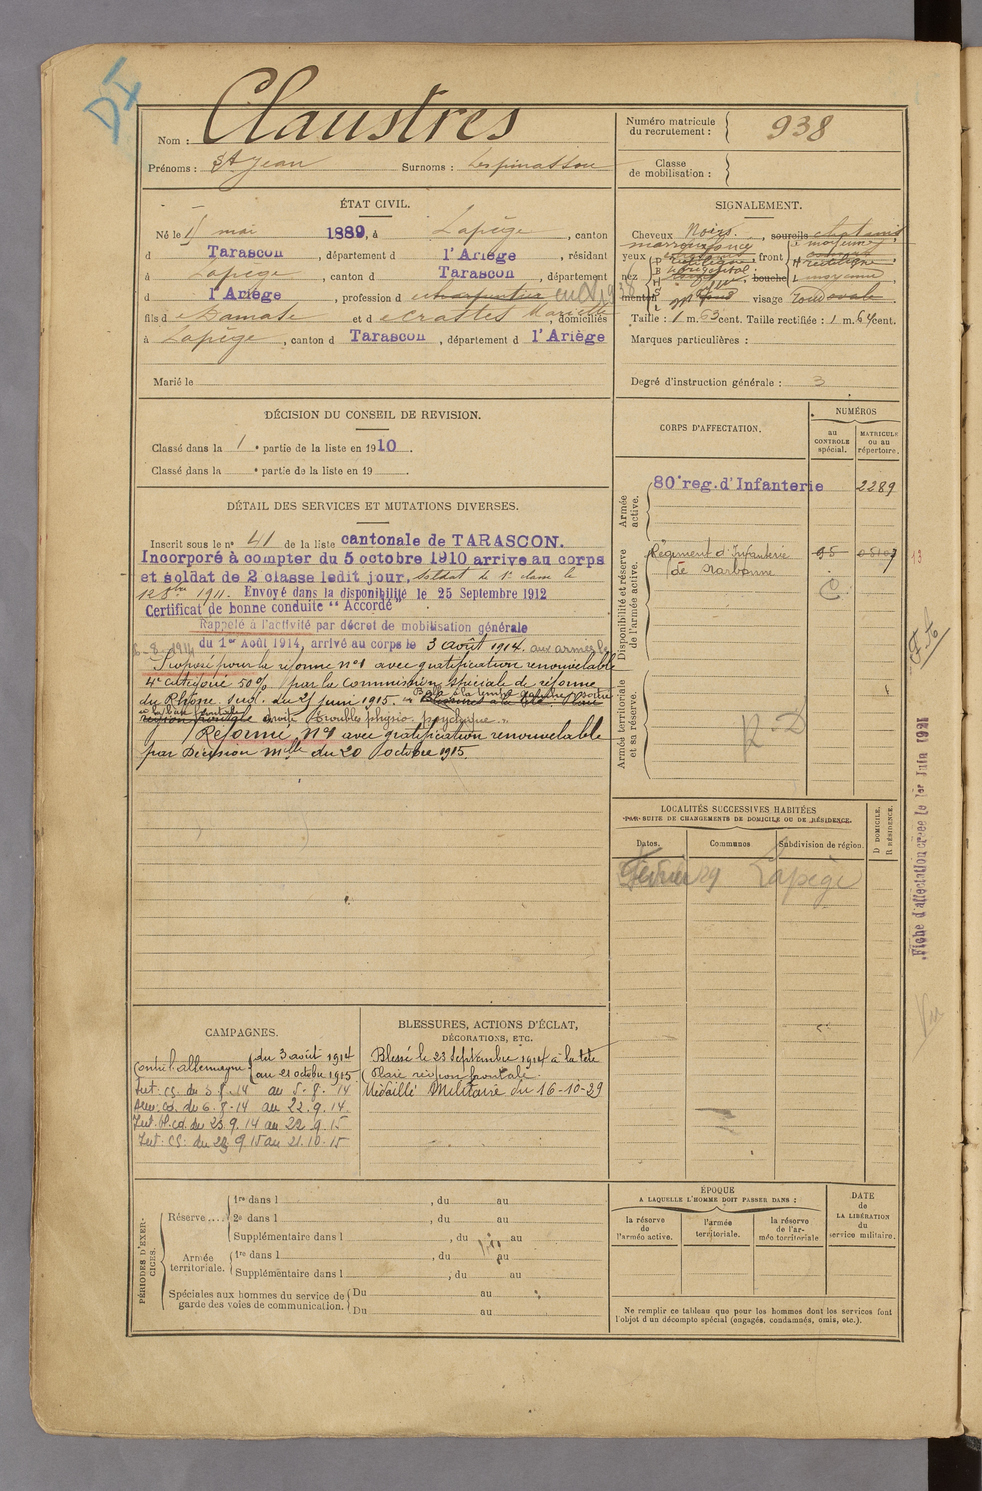 DI
Nom : Claustres
Prénoms : St Jean Surnoms : Lespinassou
Numéro matricule
du recrutement : 938
Classe
de mobilisation :
ÉTAT CIVIL.
Né le mai 1889, à Lapège, canton
d Tarascon, département d l'Ariège, résidant
à Lapège, canton d Tarascon, département
d l'Ariège, profession d
fils d et d Marielle, domiciliés
à Lapège, canton d Tarascon, département d l'Ariège
Marié le
SIGNALEMENT.
Cheveux Noirs. sourcils chatains
yeux marron foncé front moyenne
nez bouche moyenne
menton rond visage rond ovale
Taille : 1 m. 63 cent. Taille rectifiée : 1 m. 64 cent.
Marques particulières :
Degré d'instruction générale : 3
DÉCISION DU CONSEIL DE REVISION.
Classé dans la 1e partie de la liste en 1910.
Classé dans la e partie de la liste en 19
CORPS D'AFFECTATION.
NUMÉROS
au
CONTROLE
spécial.
MATRICULE
ou au
répertoire.
Armée
active.
80e reg. d'Infanterie 2289
Disponibilité et réserve
de l'armée active.
Régiment d'Infanterie
de Narbonne
C
Armée territoriale
et sa réserve.
DÉTAIL DES SERVICES ET MUTATIONS DIVERSES.
Inscrit sous le no 41 de la liste cantonale de TARASCON.
Incorporé à compter du 5 octobre 1910 arrive au corps
et soldat de 2 classe ledit jour, soldat de 1e classe le
1911. Envoyé dans la disponibilité le 25 Septembre 1912
Certificat de bonne conduite "Accordé"
Rappelé à l'activité par décret de mobilisation générale
du 1er Août 1914, arrivé au corps le 3 août 1914. aux armées le
6-8-1914
Proposé pour la réforme no 1 avec gratification renouvelable
4e catégorie 50% par la Commission spéciale de réforme
du Rhône Sud. du 25 juin 1915. Balle à la tempe gauche, sortie
droite Troubles physio-psychique."
Réformé No 1 avec gratification renouvelable
par Décision Mlle du 20 octobre 1915.
LOCALITÉS SUCCESSIVES HABITÉES
PAR SUITE DE CHANGEMENTS DE DOMICILE OU DE RÉSIDENCE.
Dates. Communes Subdivision de région. D DOMICILE. R RÉSIDENCE.
Février 29 Lapège
Fiche d'affectation créée le 1er Juin 1921
CAMPAGNES.
Contre l'allemagne du 3 août 1914
au 21 octobre 1915
Int: CS. du 3.8.14 au 5.8.14
du 6.8.14 au 22.9.14.
Int. bl. cd. du 23.9.14 au 22.9.15
Int: CS: du 23 9.15 au 21.10.15
BLESSURES, ACTIONS D'ÉCLAT,
DÉCORATIONS, ETC.
Blessé le 23 Septembre 1914 à la tête
Plaie région frontale.
Médaillé Militaire du 16-10-39
PÉRIODES D'EXERCICES.
Réserve .... 1re dans l , du au
2e dans l , du au
Supplémentaire dans l , du au
Armée
territoriale. 1re dans l , du au
Supplémentaire dans l , du au
Spéciales aux hommes du service de
garde des voies de communication. Du au
Du au
ÉPOQUE
A LAQUELLE L'HOMME DOIT PASSER DANS :
la réserve
de
l'armée active.
l'armée
territoriale.
la réserve
de l'ar-
mée territoriale
DATE
de
LA LIBÉRATION
du
service militaire.
Ne remplir ce tableau que pour les hommes dont les services font
l'objet d'un décompte spécial (engagés, condamnés, omis, etc.).